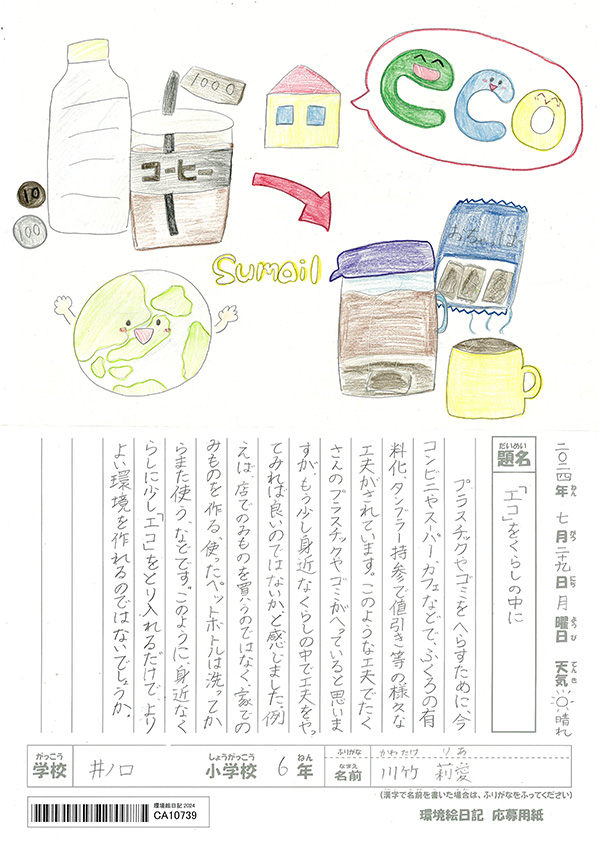 1000
eco
コーヒー
10
100
Sumail
おちゃっぱ
二〇二四年 七月二十九日 月曜日 天気 晴れ
ねん がつ にち ようび てんき
だいめい
題名
「エコ」をくらしの中に
プラスチックやゴミをへらすために、今
コンビニやスーパー、カフェなどで、ふくろの有
料化、タンブラー持参で値引き等の様々な
工夫がされています。このような工夫でたく
さんのプラスチックやゴミがへっていると思いま
すが、もう少し身近なくらしの中で工夫をやっ
てみれば良いのではないか、と感じました。例
えば、店でのみものを買うのではなく、家での
みものを作る、使ったペットボトルは洗ってか
らまた使う、などです。このように、身近なく
らしに少し「エコ」をとり入れるだけで、より
よい環境を作れるのではないでしょうか。
がっこう しょうがっこう ねん
学校 井ノ口 小学校 6年
ふりがな かわたけ りあ
なまえ
名前 川竹 莉愛
(漢字で名前を書いた場合は、ふりがなをふってください)
環境絵日記 2024
CA10739
環境絵日記 応募用紙